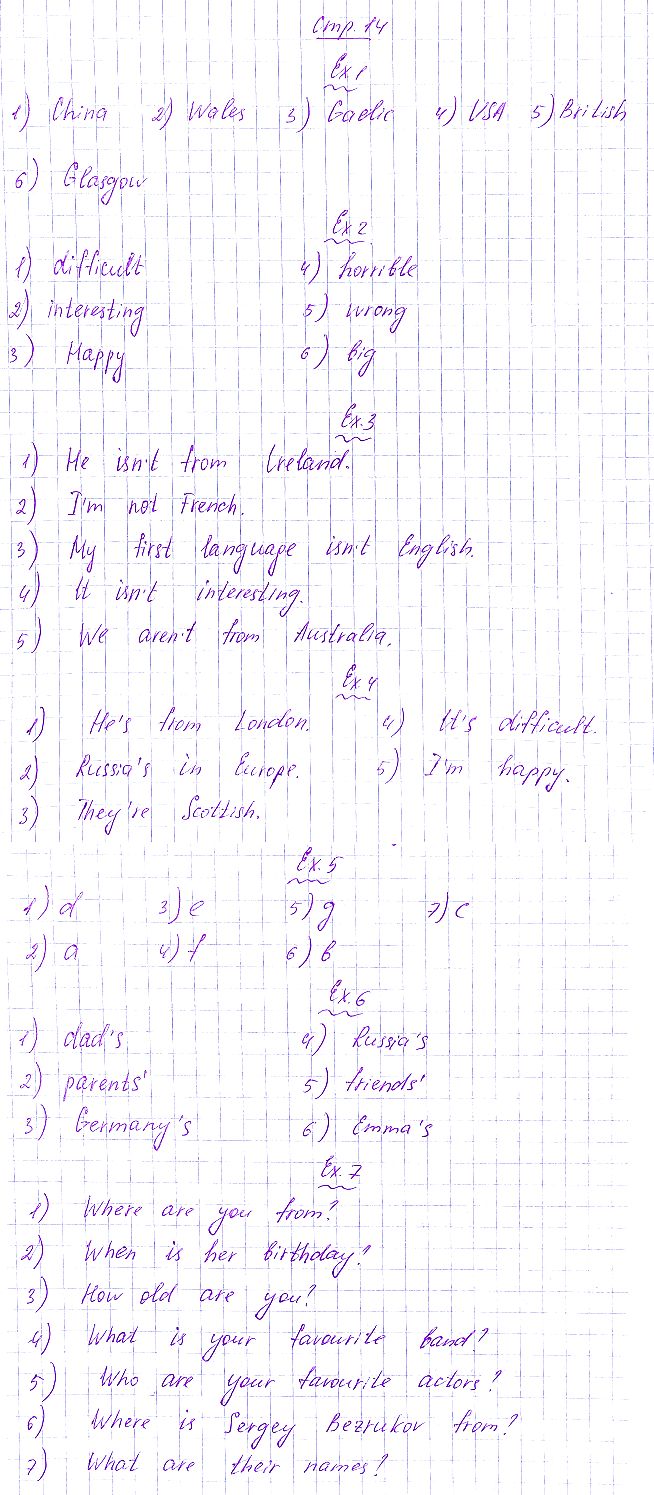 Стр. 14
Ex 1
1) China 2) Wales 3) Gaelic 4) USA 5) British
6) Glasgow
Ex 2
1) difficult 4) horrible
2) interesting 5) wrong
3) Happy 6) big
Ex. 3
1) He isn't from Ireland.
2) I'm not French.
3) My first language isn't English.
4) It isn't interesting.
5) We aren't from Australia.
Ex 4
1) He's from London. 4) It's difficult.
2) Russia's in Europe. 5) I'm happy.
3) They're Scottish.
Ex. 5
1) d 3) e 5) g 7) c
2) a 4) f 6) b
Ex. 6
1) dad's 4) Russia's
2) parents' 5) friends'
3) Germany's 6) Emma's
Ex. 7
1) Where are you from?
2) When is her birthday?
3) How old are you?
4) What is your favourite band?
5) Who are your favourite actors?
6) Where is Sergey Bezrukov from?
7) What are their names?